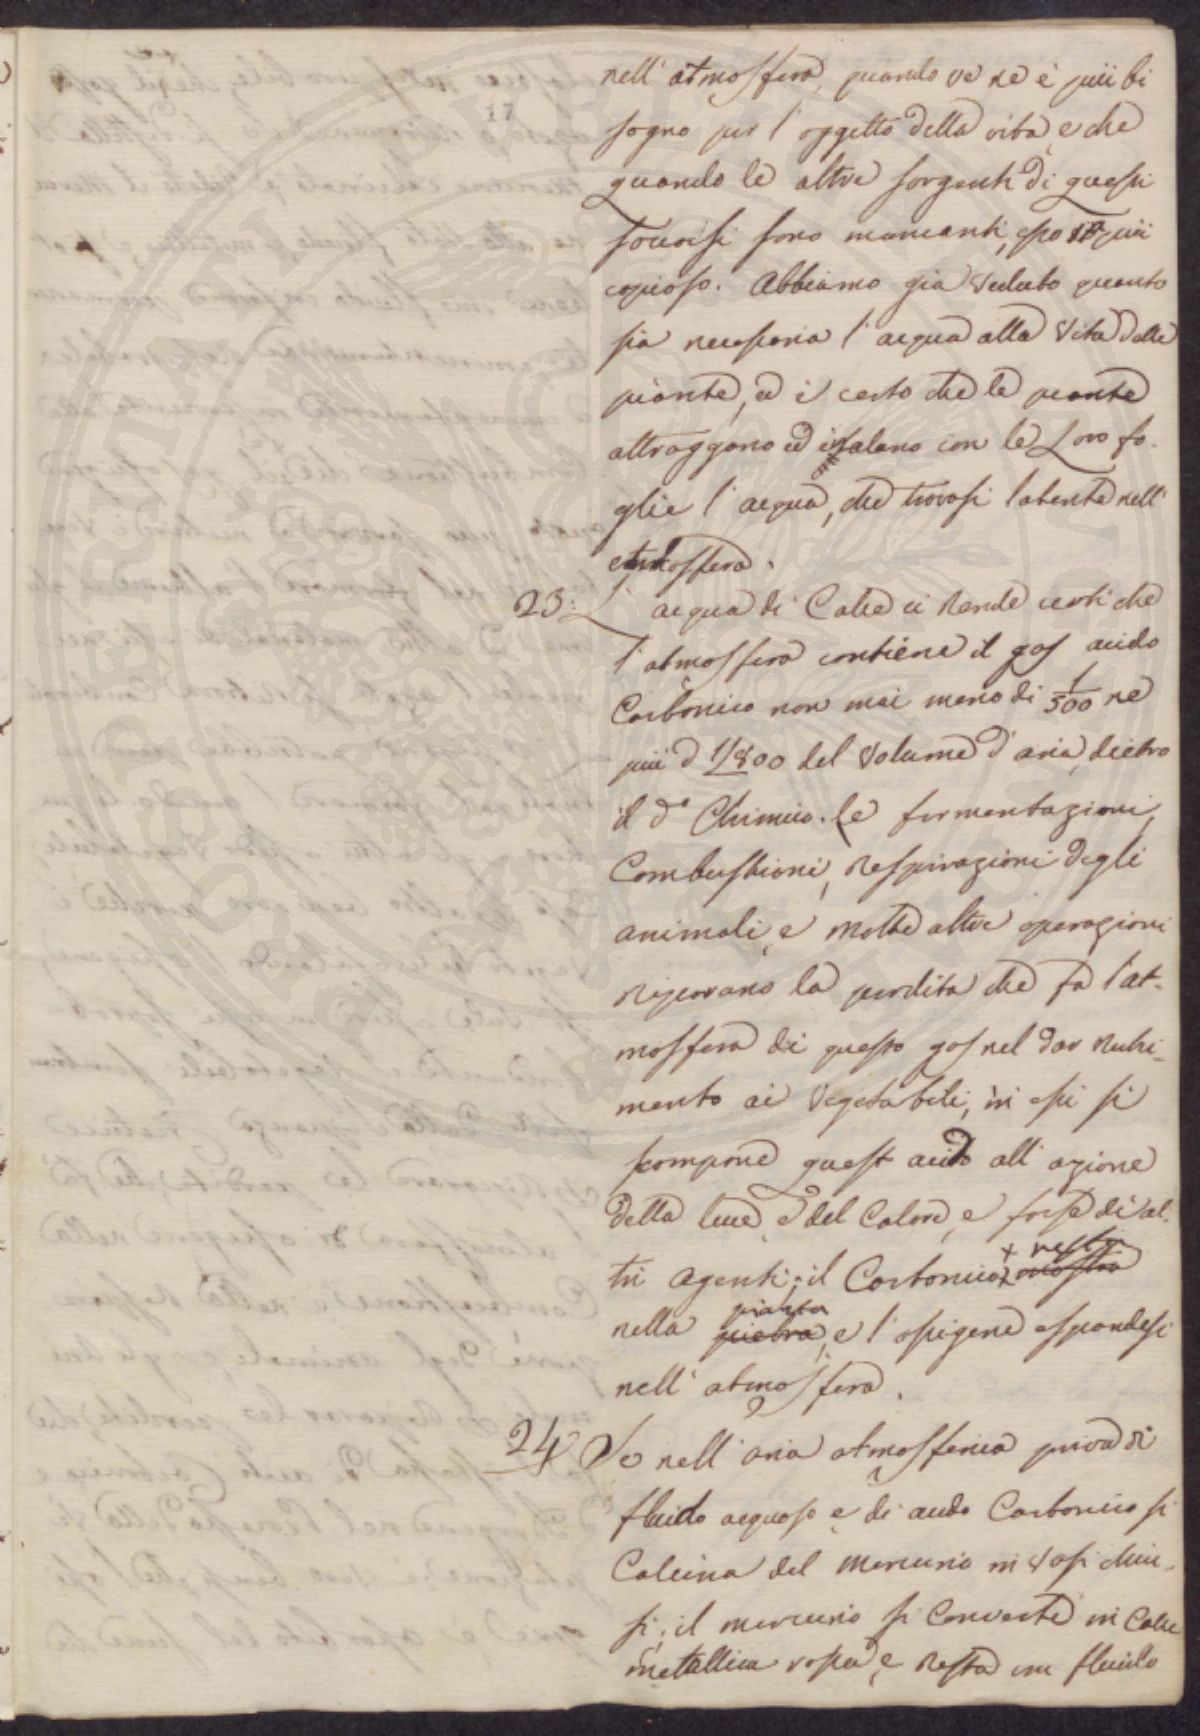 17
nell' atmosfera, quando ve ne è più bi
sogno per l'oggetto della vita, e che
quando le altre sorgenti di questi
soccorsi sono mancanti, esso è più
copioso. Abbiamo già veduto quanto
sia necessaria l'acqua alla vita delle
piante, ed è certo che le piante
attraggono ed inalano con le Loro fo-
glie l'acqua, che trovasi latente nell'
atmosfera.
23. L'acqua di Calce ci Rende certi che
l'atmosfera contiene il gas acido
Carbonico non mai meno di 1/500 ne
più d 1/800 del Volume d'aria, dietro
il do Chimico. Le fermentazioni,
Combustioni, Respirazioni degli
animali, e molte altre operazioni
riparano la perdita che fa l'at-
mosfera di questo gas nel dar Nutri-
mento ai Vegetabili, in essi si
scompone quest acido all'azione
della luce, e del Calore, e forse di al-
tri agenti; il Carbonico + resta
nella pianta, e l'ossigene espandesi
nell' atmosfera.
24 Se nell'aria atmosferica priva di
fluido acquoso e di acido Carbonico si
Calcina del Mercurio in Vasi chiu-
si, il mercurio si Converte in Calce
metallica rossa, e Resta un fluido